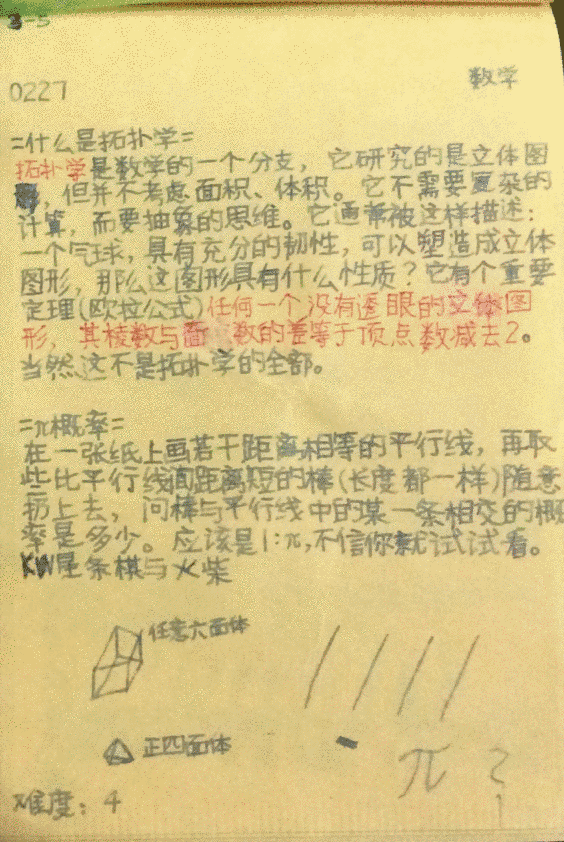 3-5
0227 数学
=什么是拓扑学=
拓扑学是数学的一个分支，它研究的是立体图
，但并不考虑面积、体积。它不需要复杂的
计算，而要抽象的思维。它通常被这样描述：
一个气球，具有充分的韧性，可以塑造成立体
图形，那么这图形具有什么性质？它有个重要
定理(欧拉公式)任何一个没有透眼的立体图
形，其棱数与面数的差等于顶点数减去2。
当然这不是拓扑学的全部。
=π概率=
在一张纸上画若干距离相等的平行线，再取
些比平行线间距离短的棒(长度都一样)随意
扔上去，问棒与平行线中的某一条相交的概
率是多少。应该是1:π,不信你就试试看。
KW星条棋与火柴
任意六面体
正四面体
π ?
难度：4